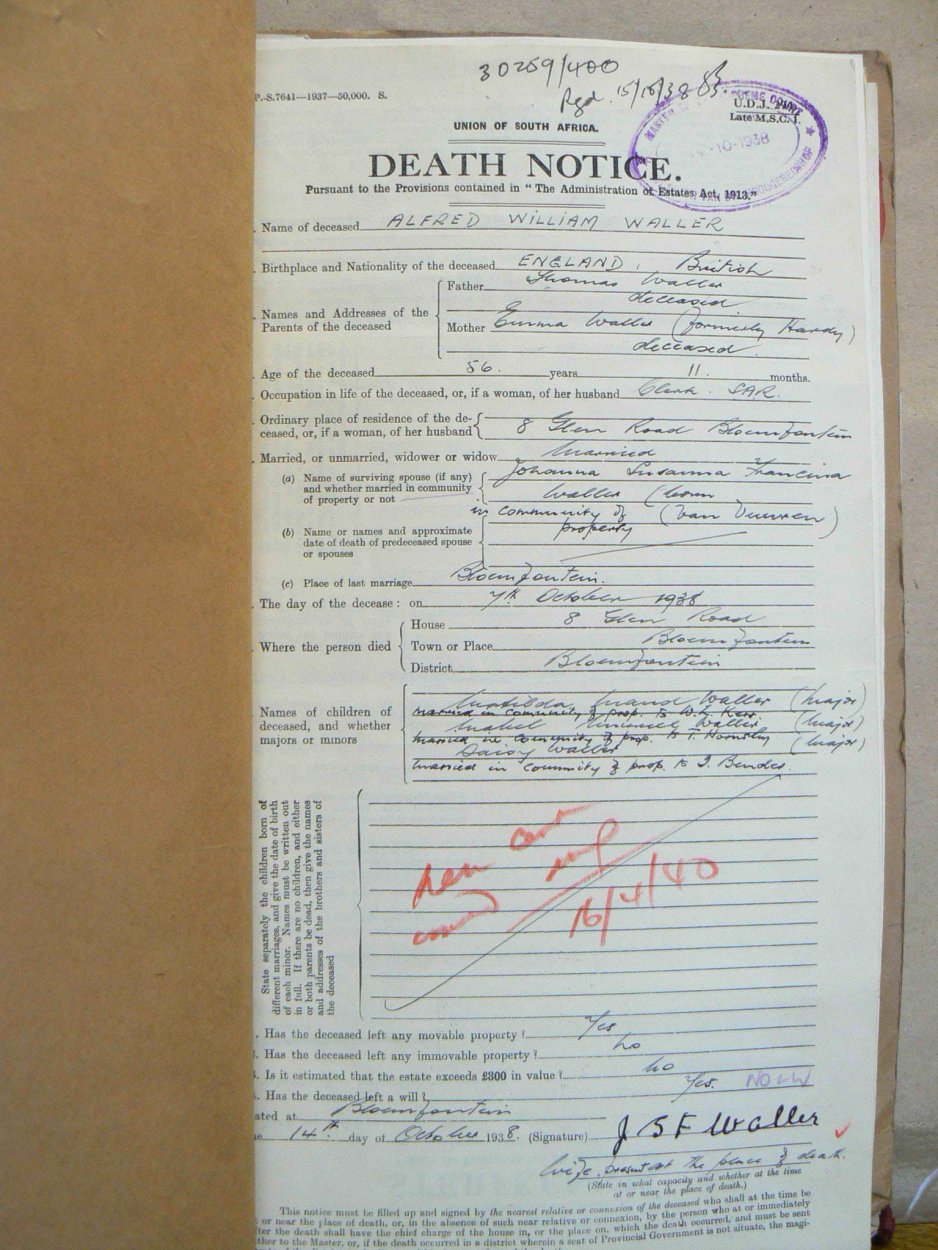 30259/400
P.-S.7641—1937—50,000. S.
15/10/38
U.D.J.
Late M.S.C. 1.
10-1938
UNION OF SOUTH AFRICA.
DEATH NOTICE.
Pursuant to the Provisions contained in "The Administration of Estates Act, 1913."
. Name of deceased ALFRED WILLIAM WALLER
. Birthplace and Nationality of the deceased ENGLAND. British
. Names and Addresses of the Parents of the deceased
Father Thomas Waller
deceased
Mother Emma Waller (formerly Hardy)
deceased.
. Age of the deceased 56. years 11. months.
. Occupation in life of the deceased, or, if a woman, of her husband Clerk. SAR.
. Ordinary place of residence of the de-
ceased, or, if a woman, of her husband 8 Glen Road Bloemfontein
. Married, or unmarried, widower or widow Married
(a) Name of surviving spouse (if any)
and whether married in community
of property or not
Johanna Susanna Francina
Waller (born
in community of (Van Vuuren)
property
(b) Name or names and approximate
date of death of predeceased spouse
or spouses
(c) Place of last marriage Bloemfontein.
. The day of the decease: on 7th October 1938
. Where the person died
House 8 Glen Road
Town or Place Bloemfontein
District Bloemfontein
Names of children of
deceased, and whether
majors or minors
Matilda Maud Waller (major)
married in community of prop. to W. Kerr
Mabel Waller (major)
married in community of prop. to T.
Daisy Waller (major)
married in community of prop. to J. Bendes.
State separately the children born of
different marriages, and give the date of birth
of each minor. Names must be written out
in full. If there are no children, and either
or both parents be dead, then give the names
and addresses of the brothers and sisters of
the deceased
16/4/40
. Has the deceased left any movable property? Yes
. Has the deceased left any immovable property? no
. Is it estimated that the estate exceeds £300 in value? no
. Has the deceased left a will? Yes.
ated at Bloemfontein
e 14th day of October 1938. (Signature) J S F Waller
Wife. present at the place of death.
(State in what capacity and whether at the time
at or near the place of death.)
This notice must be filled up and signed by the nearest relative or connexion of the deceased who shall at the time be
or near the place of death, or, in the absence of such near relative or connexion, by the person who at or immediately
fter the death shall have the chief charge of the house in, or the place on, which the death occurred, and must be sent
ther to the Master, or, if the death occurred in a district wherein a seat of Provincial Government is not situate, the magi-